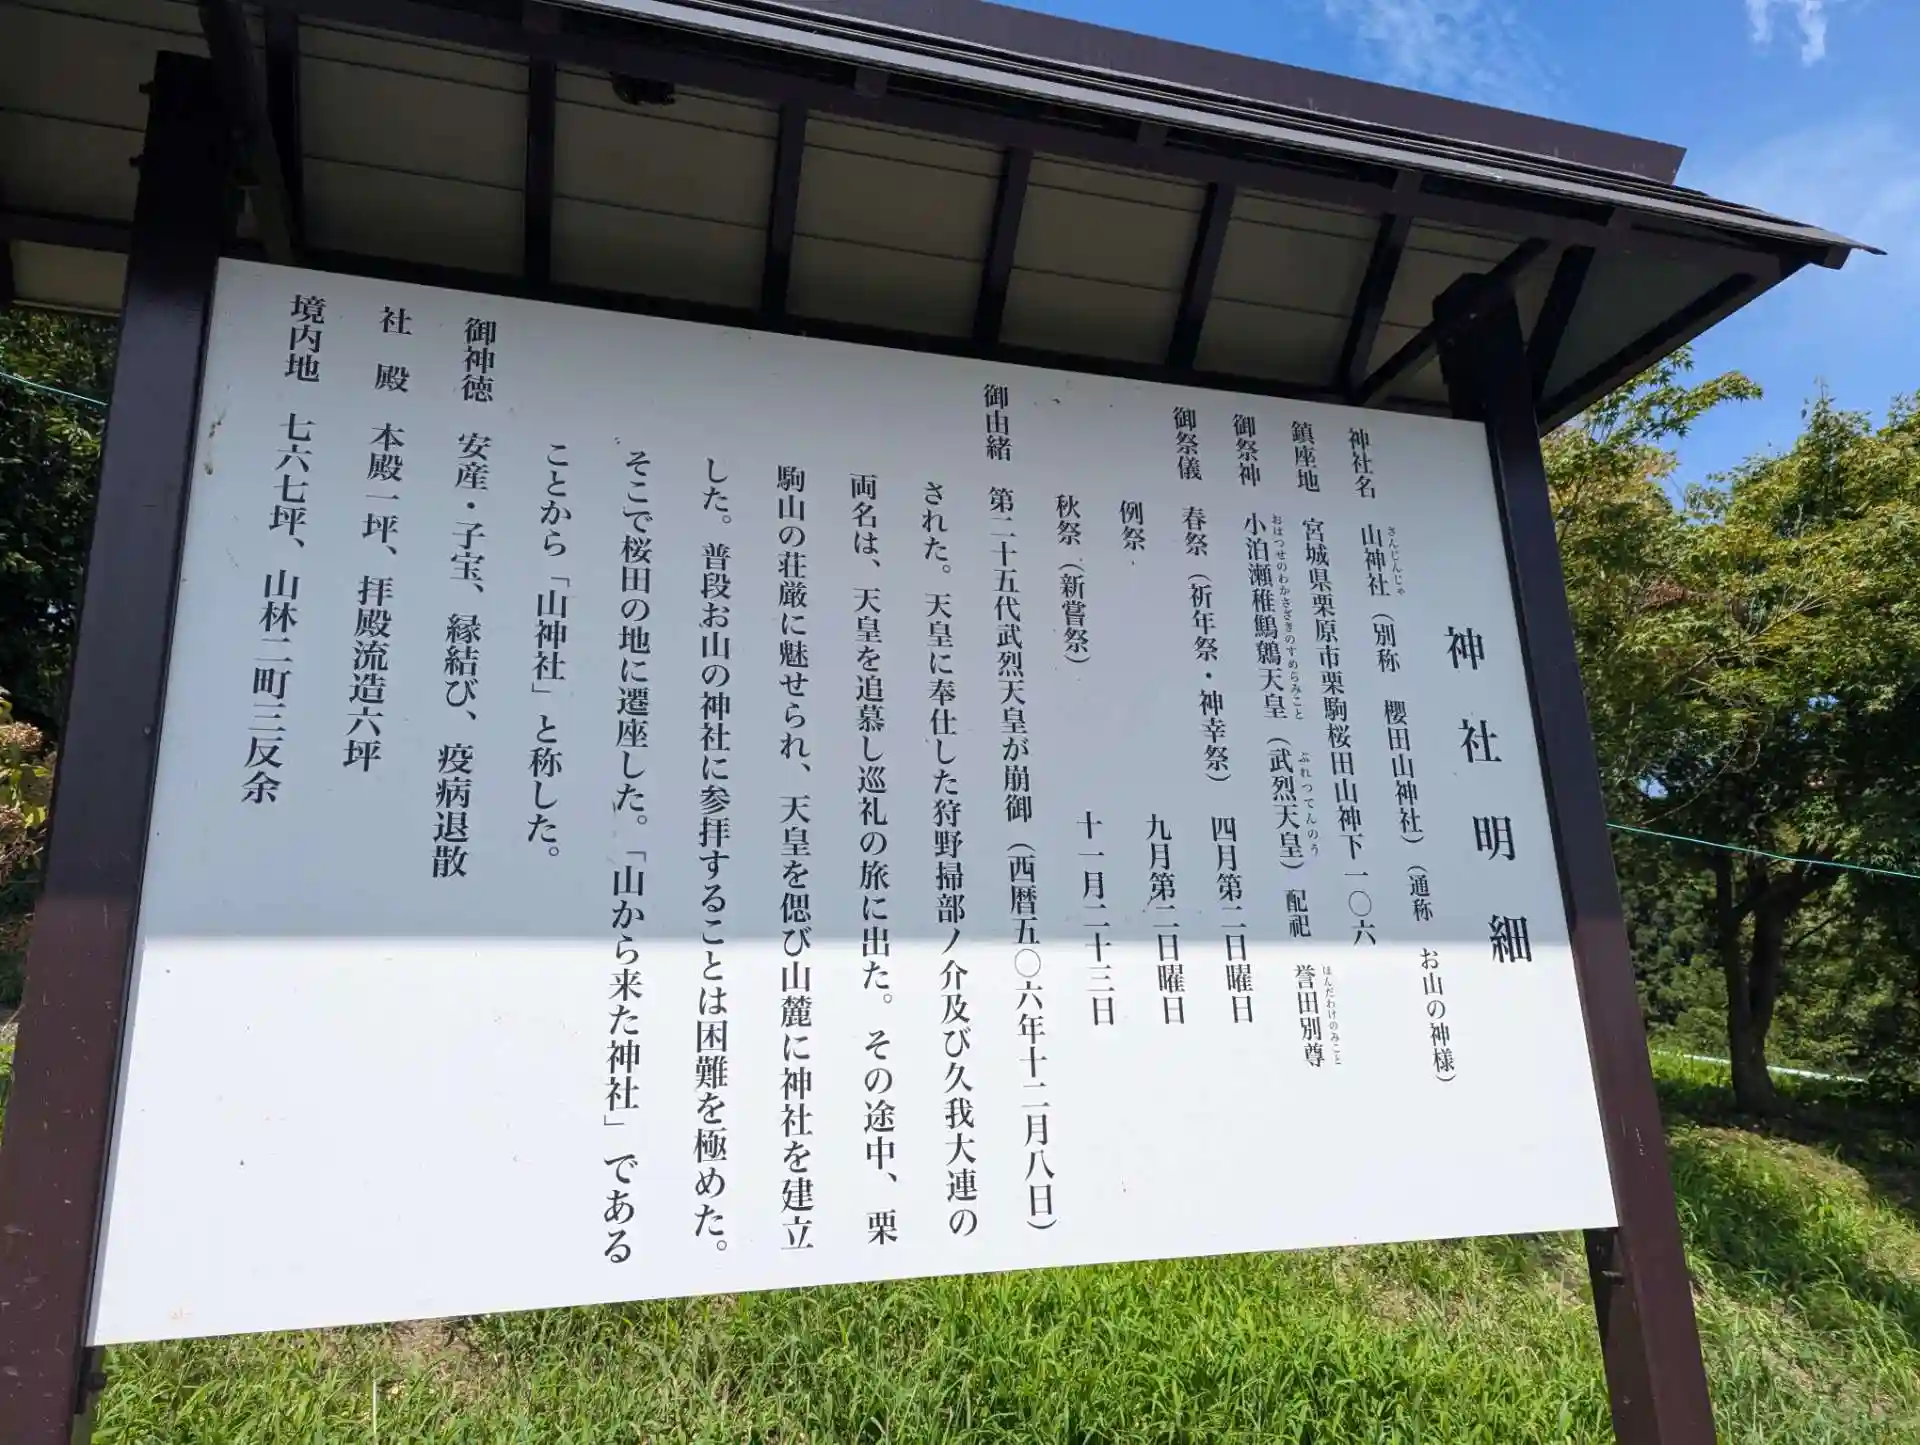 神社明細
神社名　山神社（別称　櫻田山神社）（通称　お山の神様）
さんじんじゃ
鎮座地　宮城県栗原市栗駒桜田山神下一〇六
御祭神　小泊瀬稚鷦鷯天皇（武烈天皇）　配祀　誉田別尊
おはつせのわかさざきのすめらみこと　ぶれつてんのう　ほんだわけのみこと
御祭儀　春祭（祈年祭・神幸祭）　四月第二日曜日
例祭　九月第二日曜日
秋祭（新嘗祭）　十一月二十三日
御由緒　第二十五代武烈天皇が崩御（西暦五〇六年十二月八日）
された。天皇に奉仕した狩野掃部ノ介及び久我大連の
両名は、天皇を追慕し巡礼の旅に出た。その途中、栗
駒山の荘厳に魅せられ、天皇を偲び山麓に神社を建立
した。普段お山の神社に参拝することは困難を極めた。
そこで桜田の地に遷座した。「山から来た神社」である
ことから「山神社」と称した。
御神徳　安産・子宝、縁結び、疫病退散
社　殿　本殿一坪、拝殿流造六坪
境内地　七六七坪、山林二町三反余